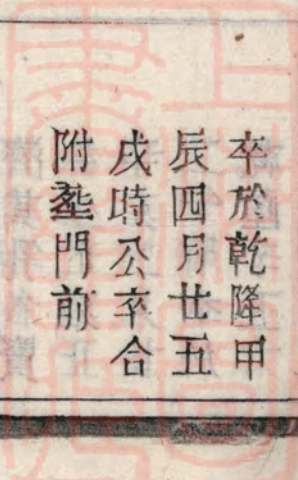 卒於乾降甲
辰四月廿五
戌時公卒合
附塟門前